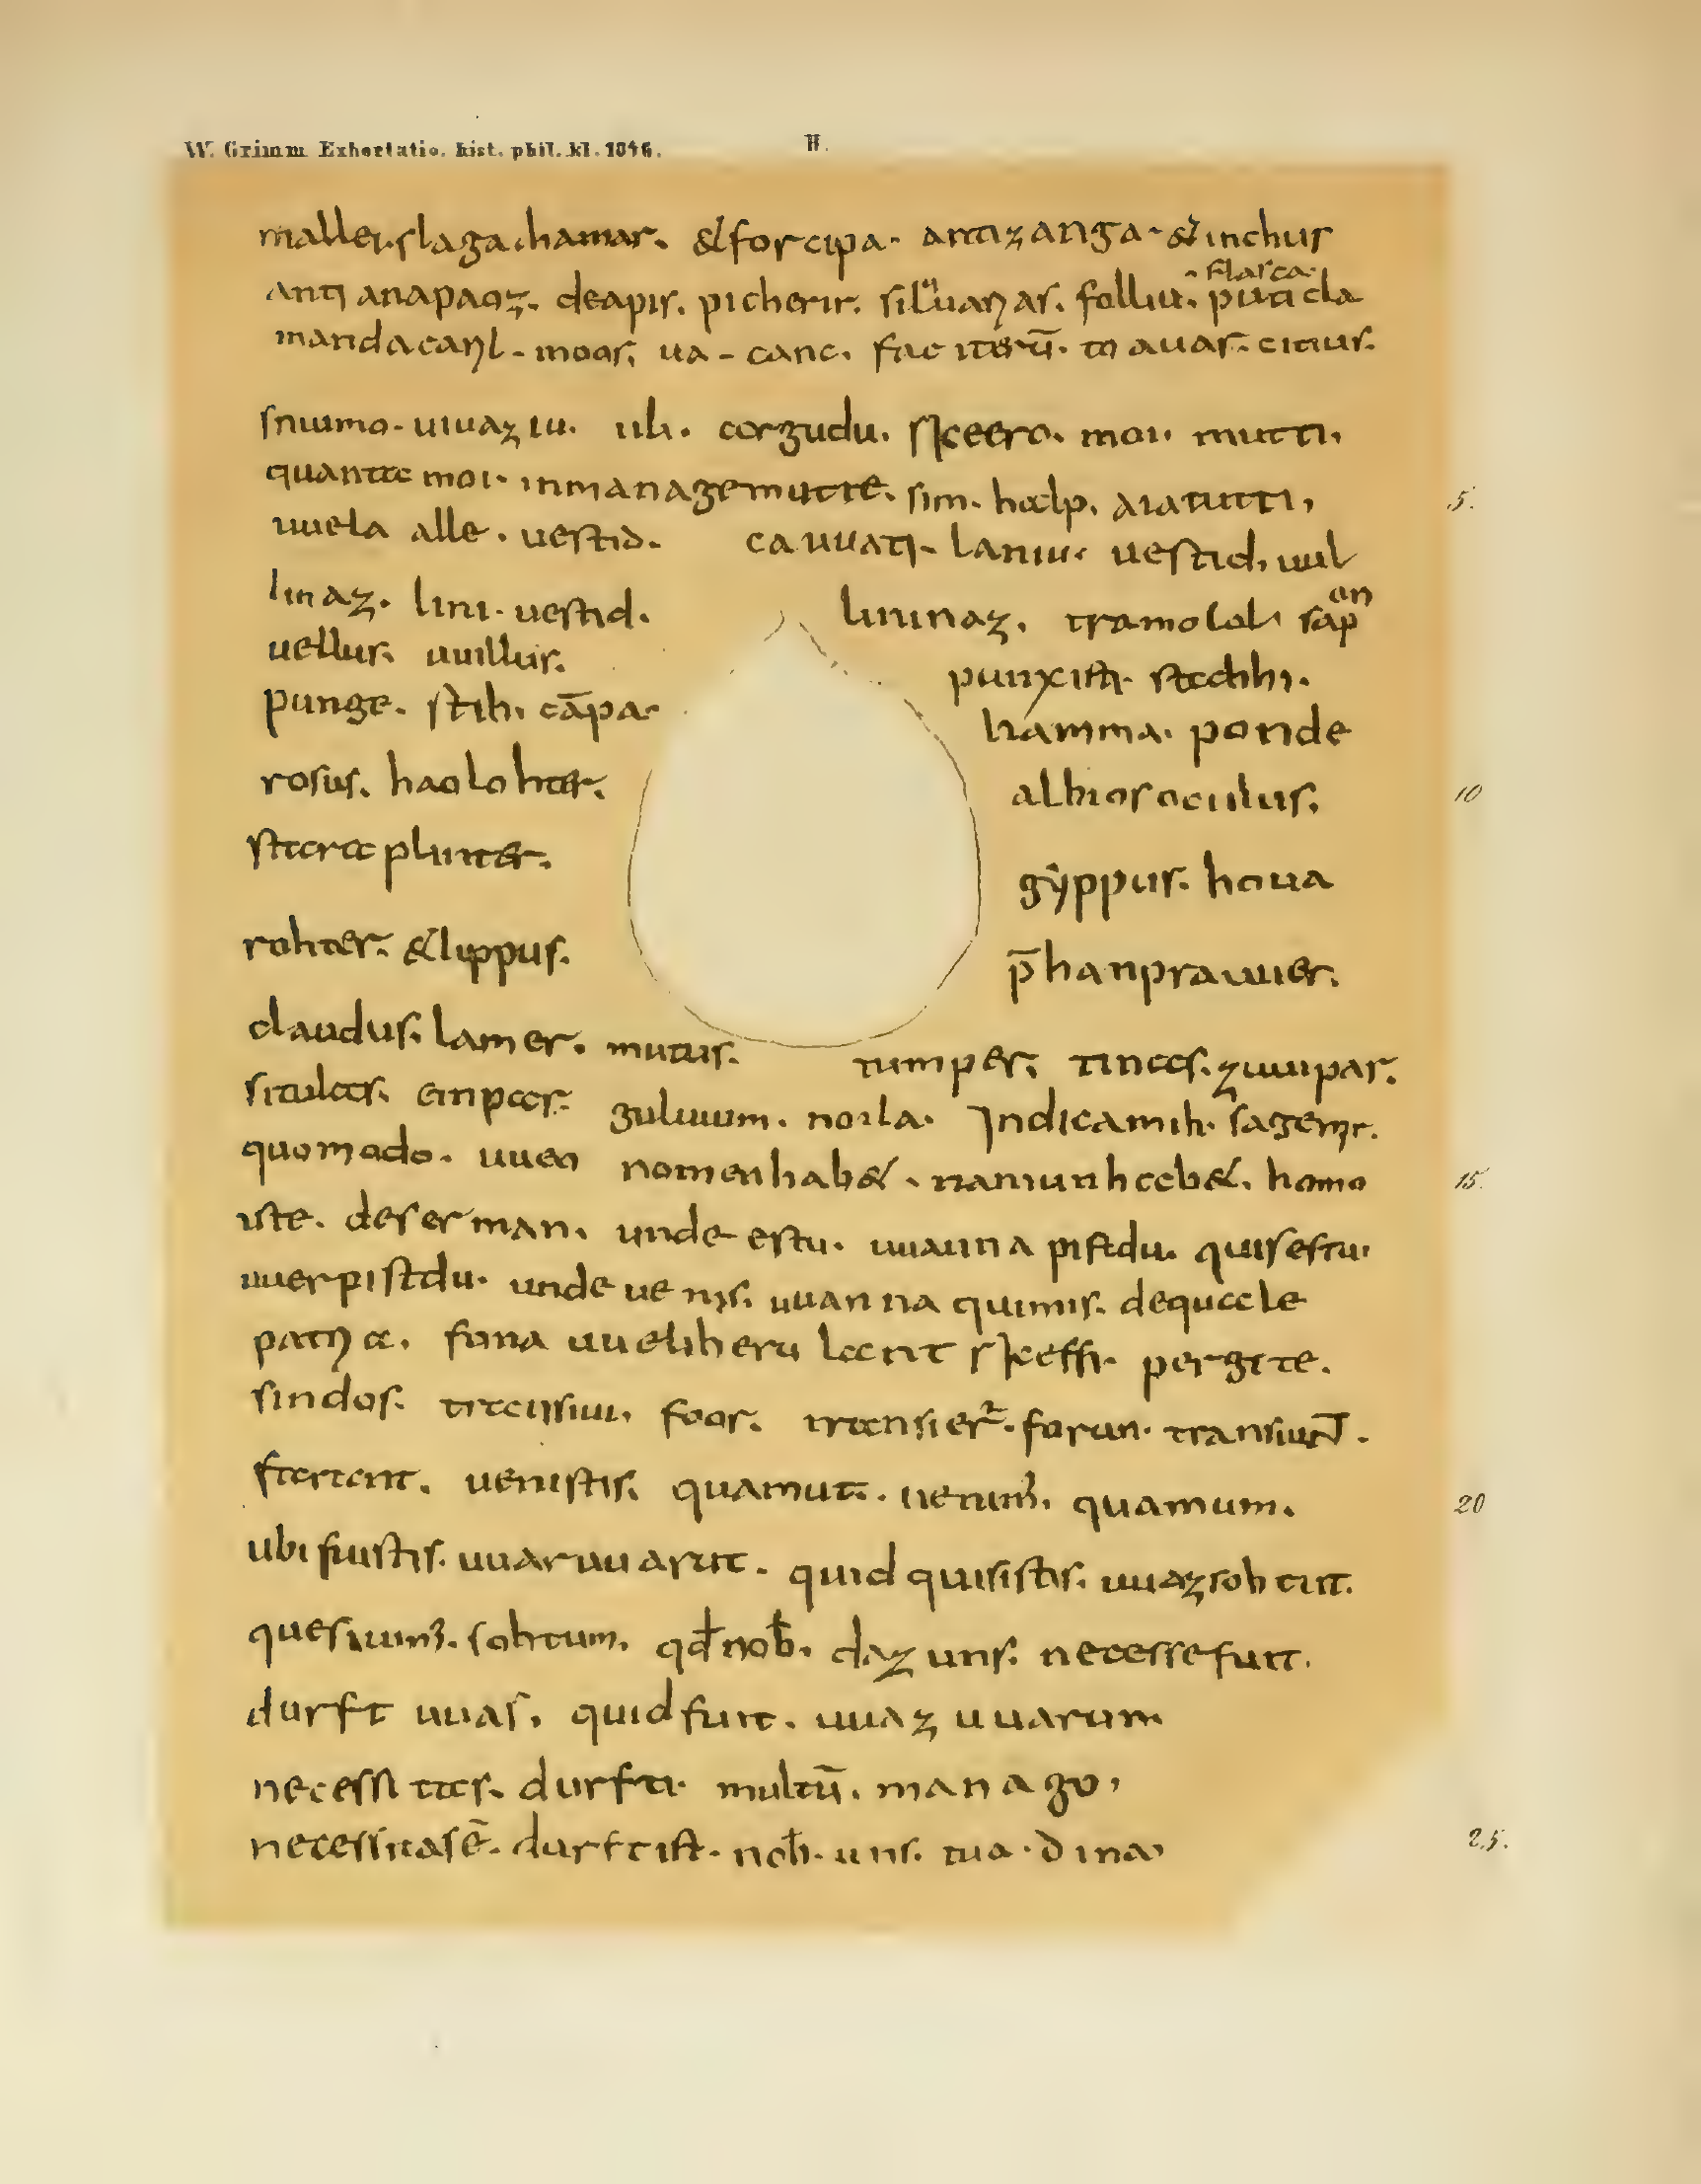 W. Grimm Exhortatio. hist. phil. kl. 1846. II.
mallei. slaga. hamar. & forcipa. anti zanga. & inchus
flasca.
anti anapaoz. deapis. picherir. siluarias. folliu. puticla
manda cari l - moos. ua - canc. fac iterū. to auar. citius.
sniumo. uiuaziu. ili. corzudu. skeero. moi. mutti.
quantte moi. in managemutte. sim. halp. aiatutti.
uuela alle. uestid. ca uuati. laniu. uestid. uul
linaz. lini. uestid. lininaz. tramolol. sap
an
uellus. uuillus. punxisti. stachhi.
punge. stih. cāpa. hamma. ponde
rosus. haolohter. albios oculus.
staraplinter. gyppus. houa
rohter. & lippus. p̄hanprauuer.
claudus. lamer. mutus. tumper. tinas. zuuipar.
situlas. einpar. guluium. noila. Indica mih. sage mir.
quomodo. uueo nomen hab&. namun hab&. homo
iste. deser man. unde estu. uuanna pistdu. quis estu.
uuer pistdu. unde uenis. uuanna quimis. de quale
patria. fona uuelihheru lant skeffi. pergite.
sindos. transiui. foor. transier². forun. transiunt.
fartant. uenistis. quamut. uenim³. quamum.
ubi fuistis. uuar uuarut. quid quisistis. uuaz sohtut.
quesiuim³. sohtum. qđ nob̄. daz uns. necesse fuit.
durft uuas. quid fuit. uuaz uuarum
necessitas. durfti. multū. manago.
necessitas ē. durft ist. nob̄. uns. tua. dina.
5.
10
15.
20
25.